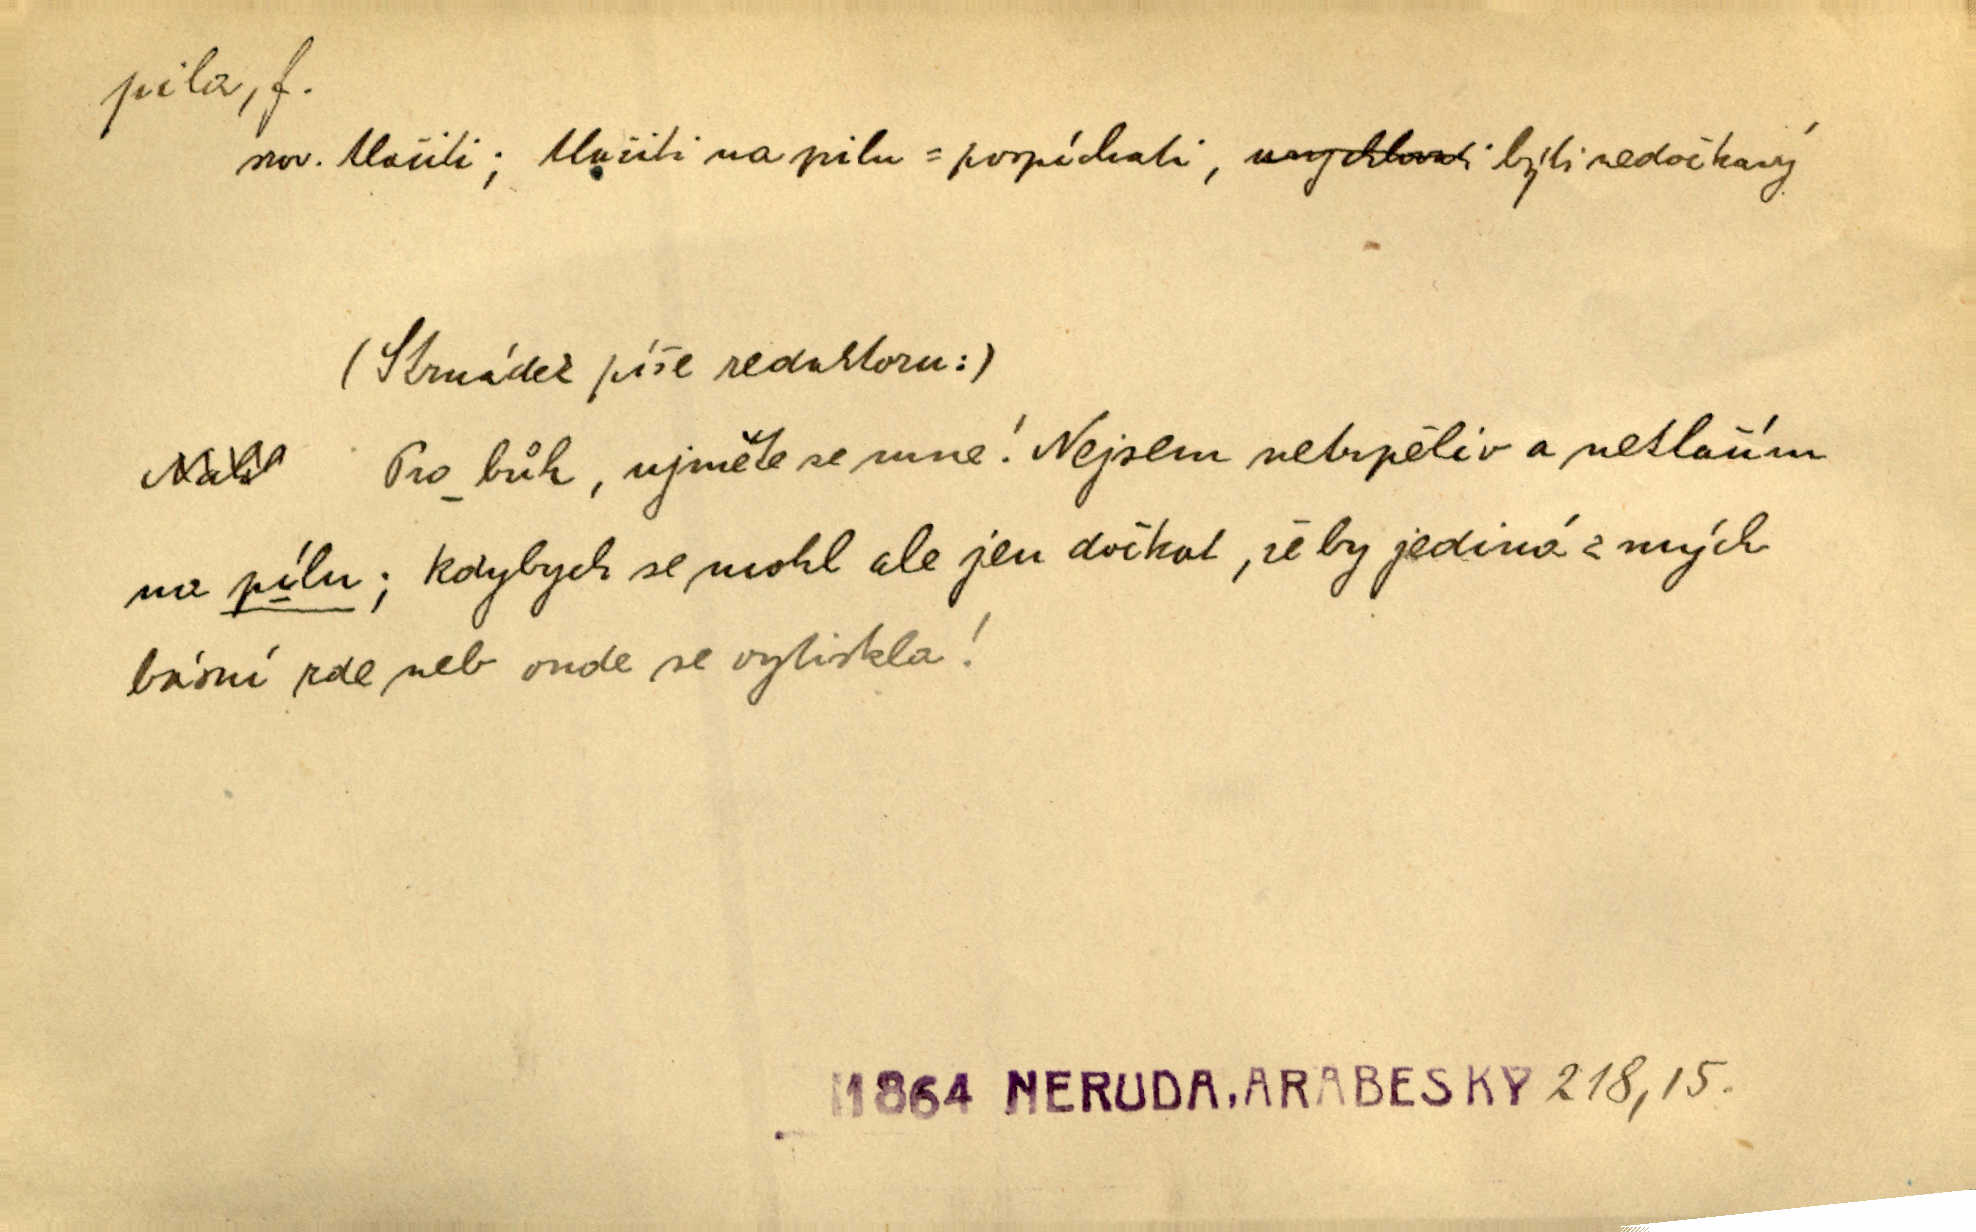 pila, f.
srov. tlačiti; tlačiti na pilu = pospíchati, býti nedočkavý
(Strnádek píše redaktoru:)
Pro bůh, ujměte se mne! Nejsem netrpěliv a netlačím
na pílu; kdybych se mohl ale jen dočkat, že by jediná z mých
básní zde neb onde se vytiskla!
1864 NERUDA, ARABESKY 218,15.